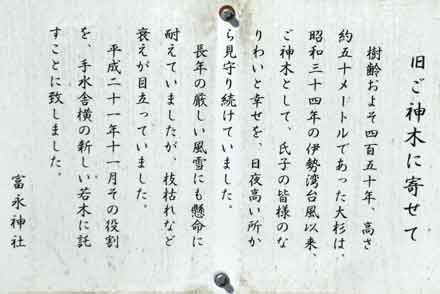 旧ご神木に寄せて
樹齢およそ四百五十年、高さ
約五十メートルであった大杉は、
昭和三十四年の伊勢湾台風以来、
ご神木として、氏子の皆様のな
りわいと幸せを、日夜高い所か
ら見守り続けていました。
長年の厳しい風雪にも懸命に
耐えていましたが、枝枯れなど
衰えが目立っていました。
平成二十一年十一月その役割
を、手水舎横の新しい若木に託
すことに致しました。
富永神社